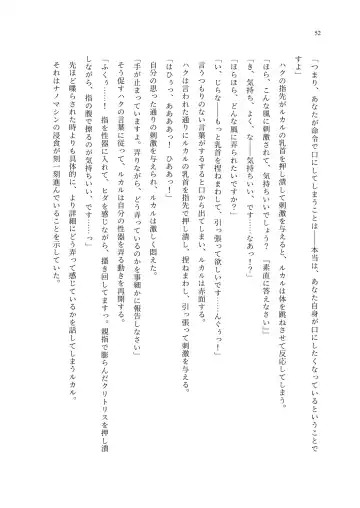 52
「つまり、あなたが命令で口にしてしまうことは――本当は、あなた自身が口にしたくなっているということで
すよ」
　ハクの指先がルカルの乳首を押し潰して刺激を与えると、ルカルは体を跳ねさせて反応してしまう。
「ほら、こんな風に刺激されて、気持ちいいでしょう？　『素直に答えなさい』」
「き、気持ち、よく、な――気持ちいい、です……なあっ！？」
「ほらほら、どんな風に弄られたいですか？」
「い、じらな――もっと乳首を捏ねまわして、引っ張って欲しいです……んぐぅっ！」
　言うつもりのない言葉がするすると口から出てしまい、ルカルは赤面する。
　ハクは言われた通りにルカルの乳首を指先で押し潰し、捏ねまわし、引っ張って刺激を与える。
「はひぅっ、あああっ！　ひああっ！」
　自分の思った通りの刺激を与えられ、ルカルは激しく悶えた。
「手が止まっていますよ。弄りながら、どう弄っているのかを事細かに報告しなさい」
　そう促すハクの言葉に従って、ルカルは自分の性器を弄る動きを再開する。
「ふくぅ……！　指を性器に入れて、ヒダを感じながら、掻き回してますっ。親指で膨らんだクリトリスを押し潰
しながら、指の腹で擦るのが気持ちいい、です……っ」
　先ほど喋らされた時よりも具体的に、より詳細にどう弄って感じているかを話してしまうルカル。
　それはナノマシンの浸食が刻一刻進んでいることを示していた。